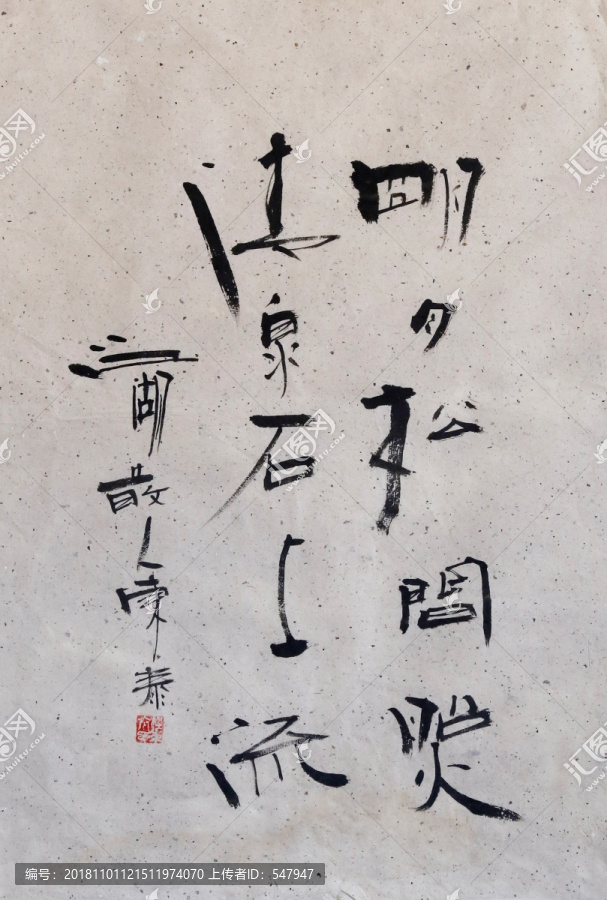 明月松間照
清泉石上流
湖散人東泰
编号：20181101121511974070 上传者ID：547947